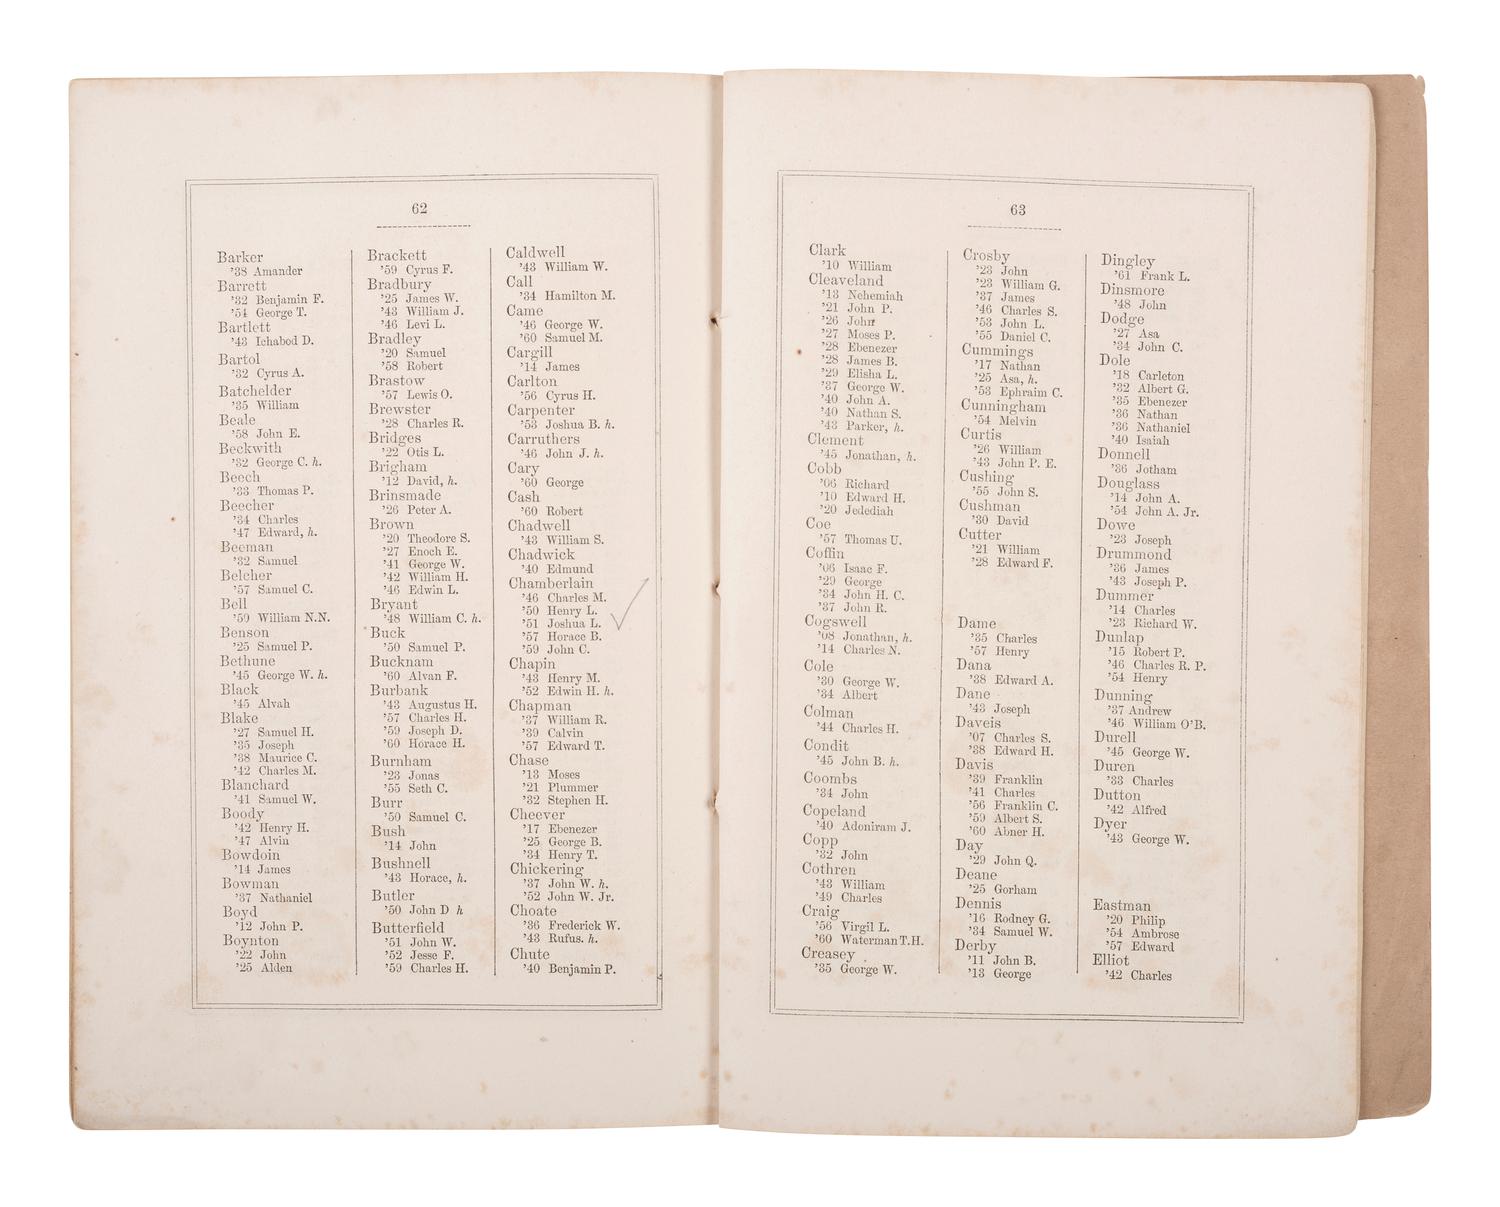 62
Barker
’38 Amander
Barrett
’32 Benjamin F.
’54 George T.
Bartlett
’43 Ichabod D.
Bartol
’32 Cyrus A.
Batchelder
’35 William
Beale
’58 John E.
Beckwith
’32 George C. h.
Beech
’33 Thomas P.
Beecher
’34 Charles
’47 Edward, h.
Beeman
’32 Samuel
Belcher
’57 Samuel C.
Bell
’59 William N.N.
Benson
’25 Samuel P.
Bethune
’45 George W. h.
Black
’45 Alvah
Blake
’27 Samuel H.
’35 Joseph
’38 Maurice C.
’42 Charles M.
Blanchard
’41 Samuel W.
Boody
’42 Henry H.
’47 Alvin
Bowdoin
’14 James
Bowman
’37 Nathaniel
Boyd
’12 John P.
Boynton
’22 John
’25 Alden
Brackett
’59 Cyrus F.
Bradbury
’25 James W.
’43 William J.
’46 Levi L.
Bradley
’20 Samuel
’58 Robert
Brastow
’57 Lewis O.
Brewster
’28 Charles R.
Bridges
’22 Otis L.
Brigham
’12 David, h.
Brinsmade
’26 Peter A.
Brown
’20 Theodore S.
’27 Enoch E.
’41 George W.
’42 William H.
’46 Edwin L.
Bryant
’48 William C. h.
Buck
’50 Samuel P.
Bucknam
’60 Alvan F.
Burbank
’43 Augustus H.
’57 Charles H.
’59 Joseph D.
’60 Horace H.
Burnham
’23 Jonas
’55 Seth C.
Burr
’50 Samuel C.
Bush
’14 John
Bushnell
’43 Horace, h.
Butler
’50 John D h
Butterfield
’51 John W.
’52 Jesse F.
’59 Charles H.
Caldwell
’43 William W.
Call
’34 Hamilton M.
Came
’46 George W.
’60 Samuel M.
Cargill
’14 James
Carlton
’56 Cyrus H.
Carpenter
’53 Joshua B. h.
Carruthers
’46 John J. h.
Cary
’60 George
Cash
’60 Robert
Chadwell
’43 William S.
Chadwick
’40 Edmund
Chamberlain
’46 Charles M.
’50 Henry L.
’51 Joshua L.
’57 Horace B.
’59 John C.
Chapin
’43 Henry M.
’52 Edwin H. h.
Chapman
’37 William R.
’39 Calvin
’57 Edward T.
Chase
’13 Moses
’21 Plummer
’32 Stephen H.
Cheever
’17 Ebenezer
’25 George B.
’34 Henry T.
Chickering
’37 John W. h.
’52 John W. Jr.
Choate
’36 Frederick W.
’43 Rufus. h.
Chute
’40 Benjamin P.
63
Clark
’10 William
Cleaveland
’13 Nehemiah
’21 John P.
’26 John
’27 Moses P.
’28 Ebenezer
’28 James B.
’29 Elisha L.
’37 George W.
’40 John A.
’40 Nathan S.
’43 Parker, h.
Clement
’45 Jonathan, h.
Cobb
’06 Richard
’10 Edward H.
’20 Jedediah
Coe
’57 Thomas U.
Coffin
’06 Isaac F.
’29 George
’34 John H. C.
’37 John R.
Cogswell
’08 Jonathan, h.
’14 Charles N.
Cole
’30 George W.
’34 Albert
Colman
’44 Charles H.
Condit
’45 John B. h.
Coombs
’34 John
Copeland
’40 Adoniram J.
Copp
’32 John
Cothren
’43 William
’49 Charles
Craig
’56 Virgil L.
’60 Waterman T.H.
Creasey
’35 George W.
Crosby
’23 John
’23 William G.
’37 James
’46 Charles S.
’53 John L.
’55 Daniel C.
Cummings
’17 Nathan
’25 Asa, h.
’53 Ephraim C.
Cunningham
’54 Melvin
Curtis
’26 William
’43 John P. E.
Cushing
’55 John S.
Cushman
’30 David
Cutter
’21 William
’28 Edward F.
Dame
’35 Charles
’57 Henry
Dana
’38 Edward A.
Dane
’43 Joseph
Daveis
’07 Charles S.
’38 Edward H.
Davis
’39 Franklin
’41 Charles
’56 Franklin C.
’59 Albert S.
’60 Abner H.
Day
’29 John Q.
Deane
’25 Gorham
Dennis
’16 Rodney G.
’34 Samuel W.
Derby
’11 John B.
’13 George
Dingley
’61 Frank L.
Dinsmore
’48 John
Dodge
’27 Asa
’34 John C.
Dole
’18 Carleton
’32 Albert G.
’35 Ebenezer
’36 Nathan
’36 Nathaniel
’40 Isaiah
Donnell
’36 Jotham
Douglass
’14 John A.
’54 John A. Jr.
Dowe
’23 Joseph
Drummond
’36 James
’43 Joseph P.
Dummer
’14 Charles
’23 Richard W.
Dunlap
’15 Robert P.
’46 Charles R. P.
’54 Henry
Dunning
’37 Andrew
’46 William O’B.
Durell
’45 George W.
Duren
’33 Charles
Dutton
’42 Alfred
Dyer
’43 George W.
Eastman
’20 Philip
’54 Ambrose
’57 Edward
Elliot
’42 Charles